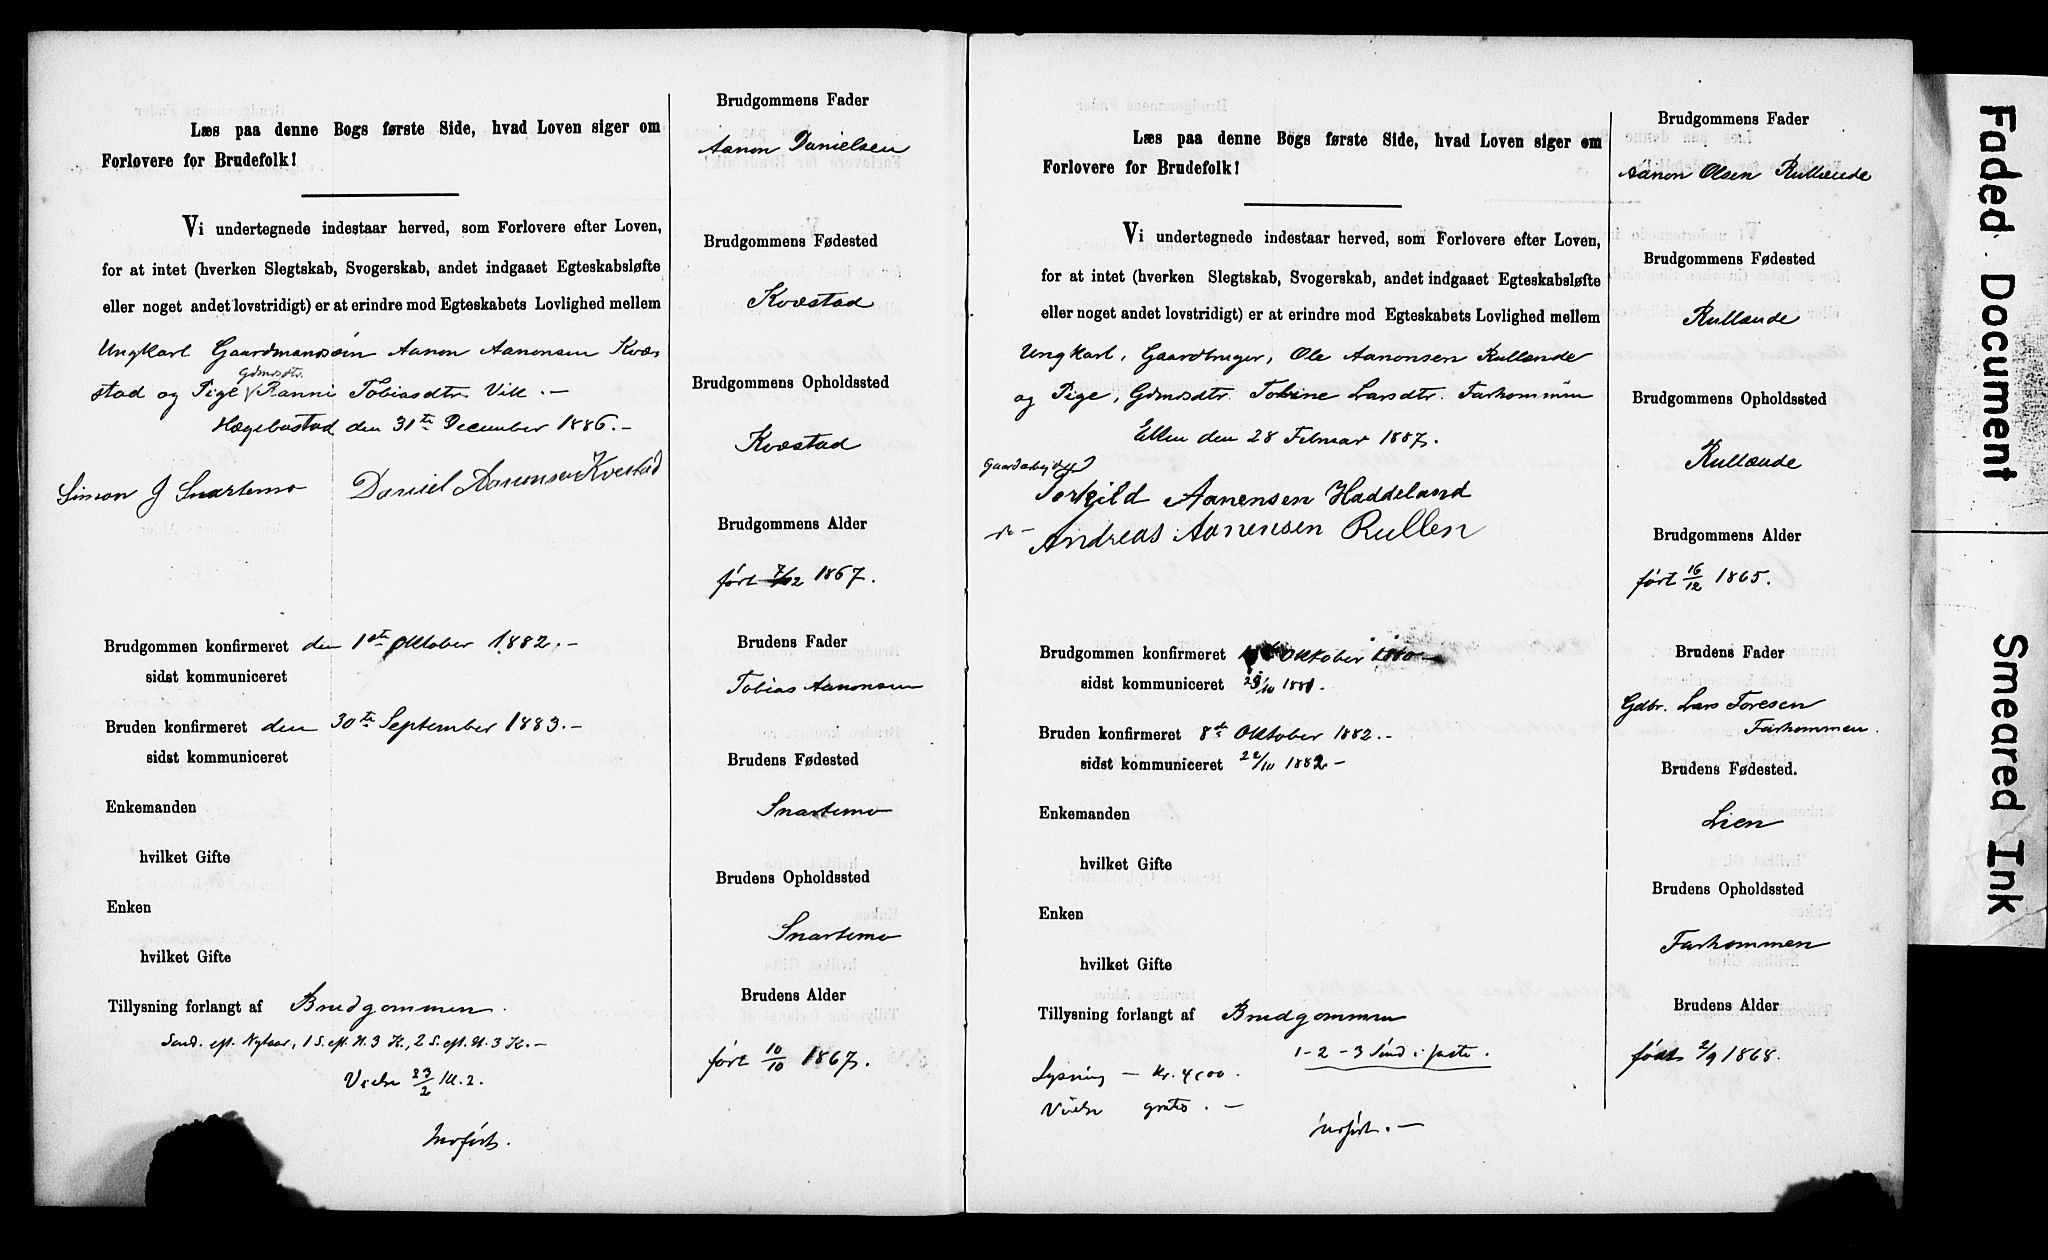 Læs paa denne Bogs første Side, hvad Loven siger om
Forlovere for Brudefolk!
Vi undertegnede indestaar herved, som Forlovere efter Loven,
for at intet (hverken Slegtskab, Svogerskab, andet indgaaet Egteskabsløfte
eller noget andet lovstridigt) er at erindre mod Egteskabets Lovlighed mellem
Ungkarl Gaardmandssøn Aanon Aanonsen Kvæ-
stad og Pige Gdmdsdtr. Ranni Tobiasdtr. Vik. -
Hægebostad den 31te December 1886. -
Simon J Snartemo Daniel Aanonsen Kvestad
Brudgommen konfirmeret den 1ste Oktober 1882. -
sidst kommuniceret
Bruden konfirmeret den 30te September 1883. -
sidst kommuniceret
Enkemanden
hvilket Gifte
Enken
hvilket Gifte
Tillysning forlangt af Brudgommen.
Sønd. eft. Nytaar, 1 S. eft. H. 3 K., 2 S. eft. H. 3 K. -
Vielse 23/2 Kl. 2.
Indført.
Brudgommens Fader
Aanon Danielsen
Brudgommens Fødested
Kvæstad
Brudgommens Opholdssted
Kvæstad
Brudgommens Alder
født 7/12 1867.
Brudens Fader
Tobias Aanonsen
Brudens Fødested
Snartemo
Brudens Opholdssted
Snartemo
Brudens Alder
født 10/10 1867.
Læs paa denne Bogs første Side, hvad Loven siger om
Forlovere for Brudefolk!
Vi undertegnede indestaar herved, som Forlovere efter Loven,
for at intet (hverken Slegtskab, Svogerskab, andet indgaaet Egteskabsløfte
eller noget andet lovstridigt) er at erindre mod Egteskabets Lovlighed mellem
Ungkarl, Gaardbruger, Ole Aanonsen Rullende
og Pige, Gdmdsdtr. Tobine Larsdtr. Farhommen
Eiken den 28 Februar 1887.
Gaardarbejder
Torkild Aanensen Haddeland
do - Andreas Aanensen Rullen
Brudgommen konfirmeret Oktober 1880 -
sidst kommuniceret 23/10 1881.
Bruden konfirmeret 8de Oktober 1882. -
sidst kommuniceret 22/10 1882 -
Enkemanden
hvilket Gifte
Enken
hvilket Gifte
Tillysning forlangt af Brudgommen
1 - 2 - 3 Sønd i faste.
Lysning - Kr. 4,00.
Vielse gratis. -
Indført. -
Brudgommens Fader
Aanon Olsen Rullende
Brudgommens Fødested
Rullende
Brudgommens Opholdssted
Rullende
Brudgommens Alder
født 16/12 1865.
Brudens Fader
Gdbr. Lars Toresen
Farhommen.
Brudens Fødested.
Lien
Brudens Opholdssted
Farhommen
Brudens Alder
født 2/9 1868.
Faded Document
Smeared Ink